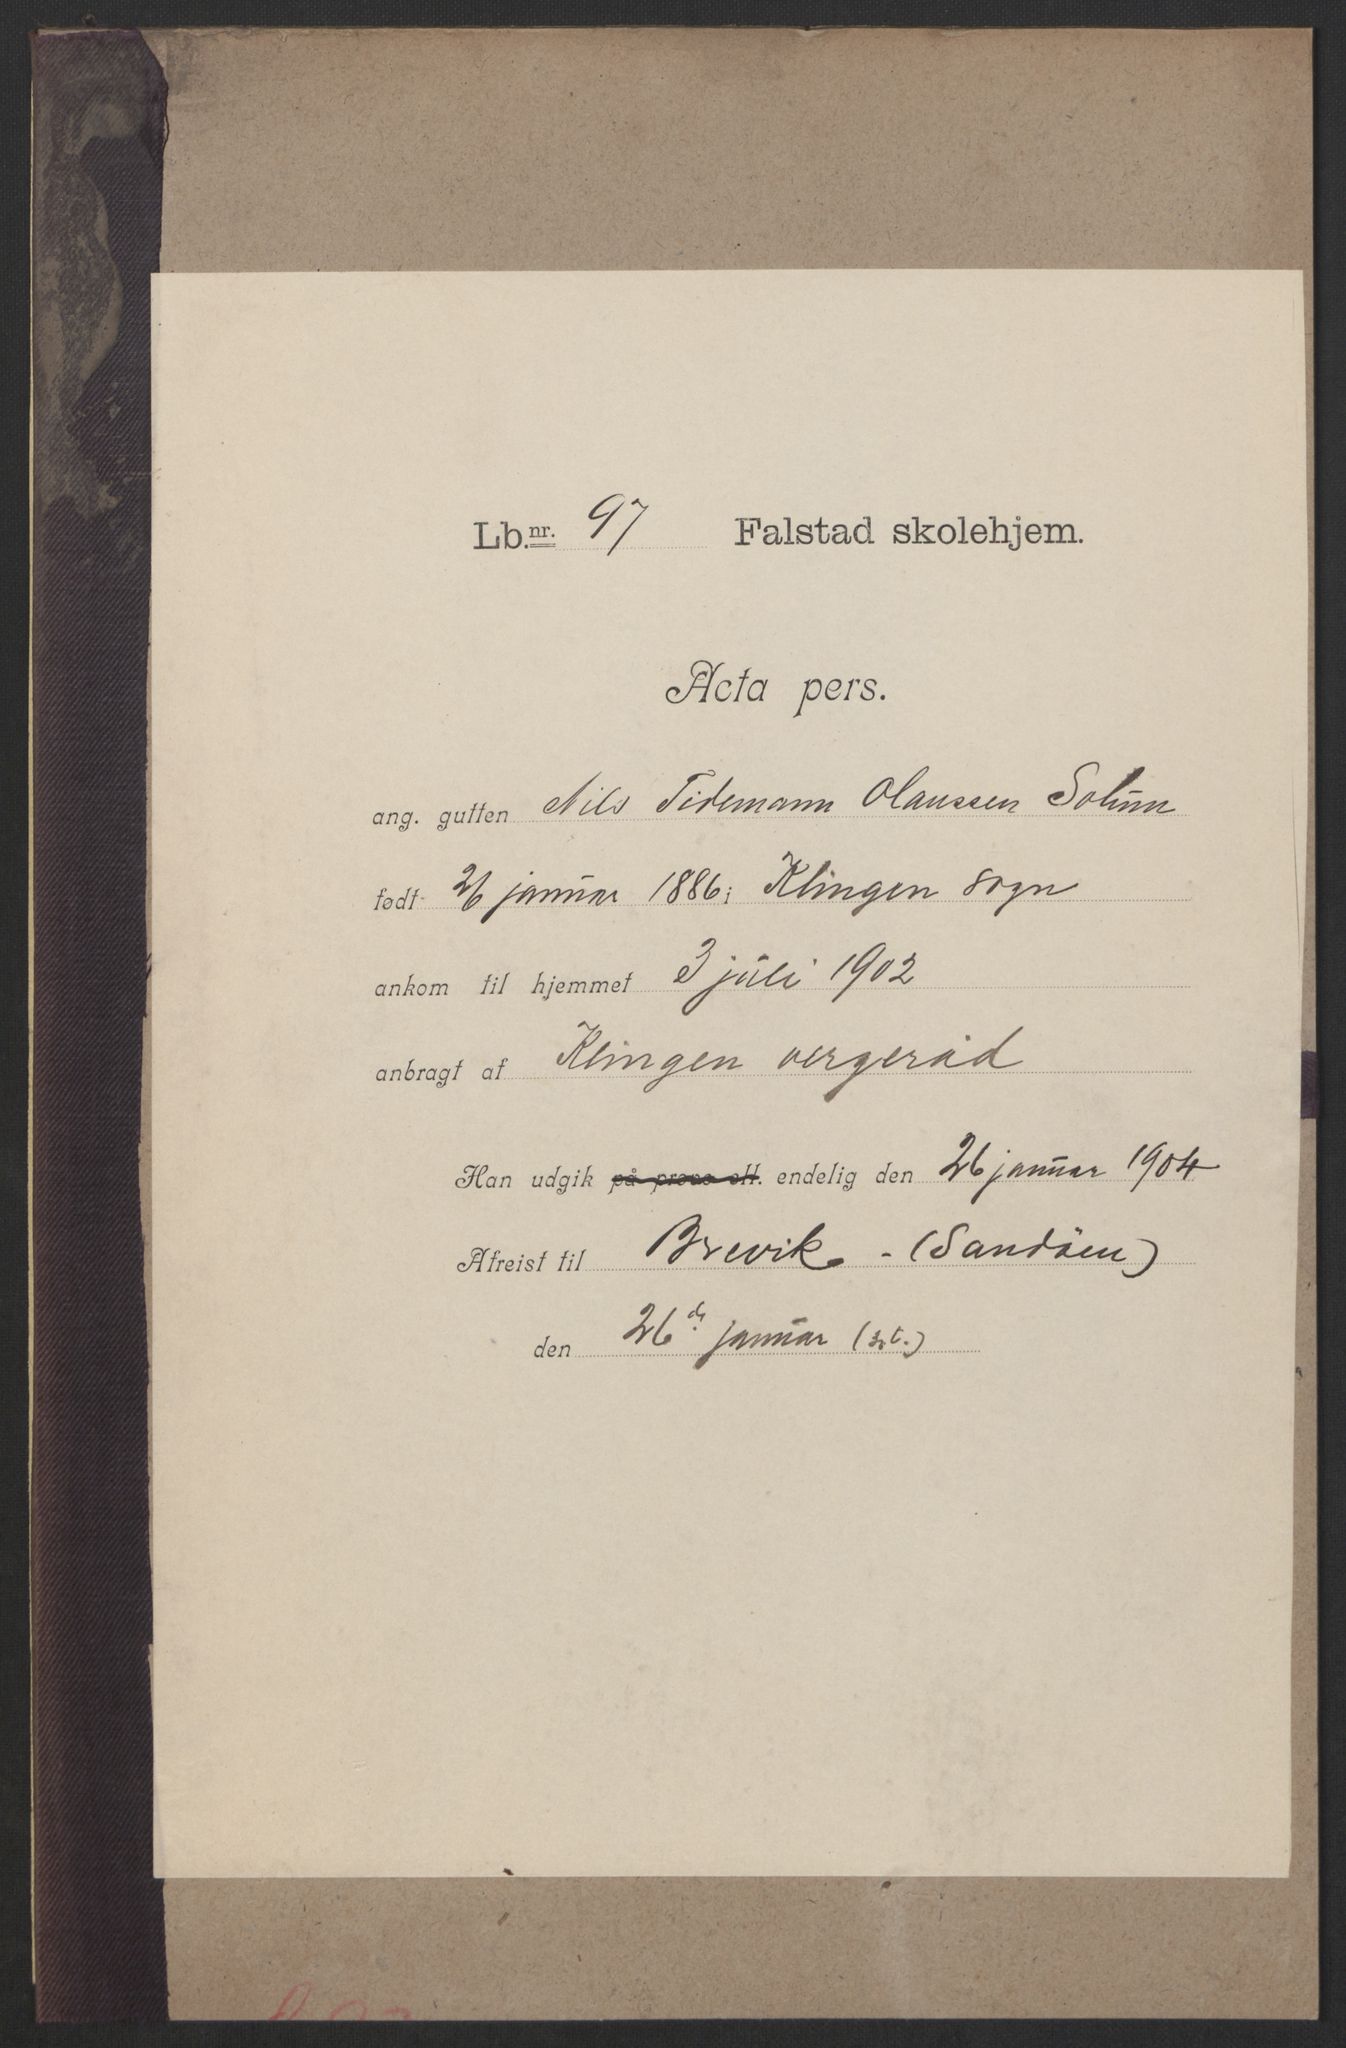 Lb.nr. 97 Falstad skolehjem.
Acta pers.
ang. gutten Nils Tidemann Olaussen Solum
født 26 januar 1886; Klingen sogn
ankom til hjemmet 3 juli 1902
anbragt af Klingen vergeråd
Han udgik på prøve ell. endelig den 26 januar 1904
Afreist til Brevik - (Sandöen)
den 26de januar (s.t.)